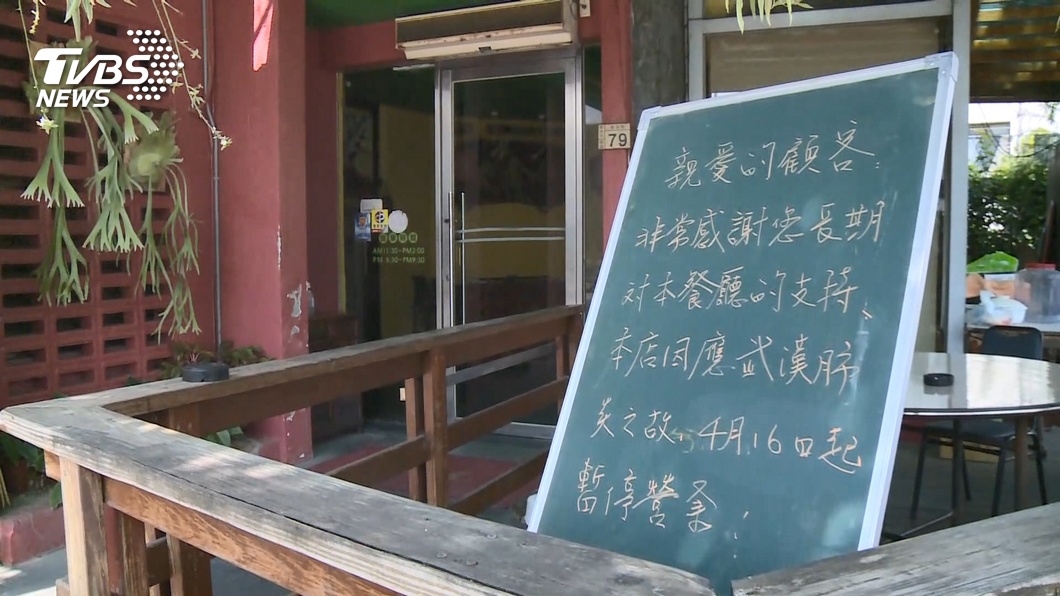 TVBS
NEWS
79
AM11:30-PM2:00
PM 5:30-PM9:30
親愛的顧客:
非常感謝您長期
對本餐廳的支持、
本店因應武漢肺
炎之故,4月16日起
暫停營業!